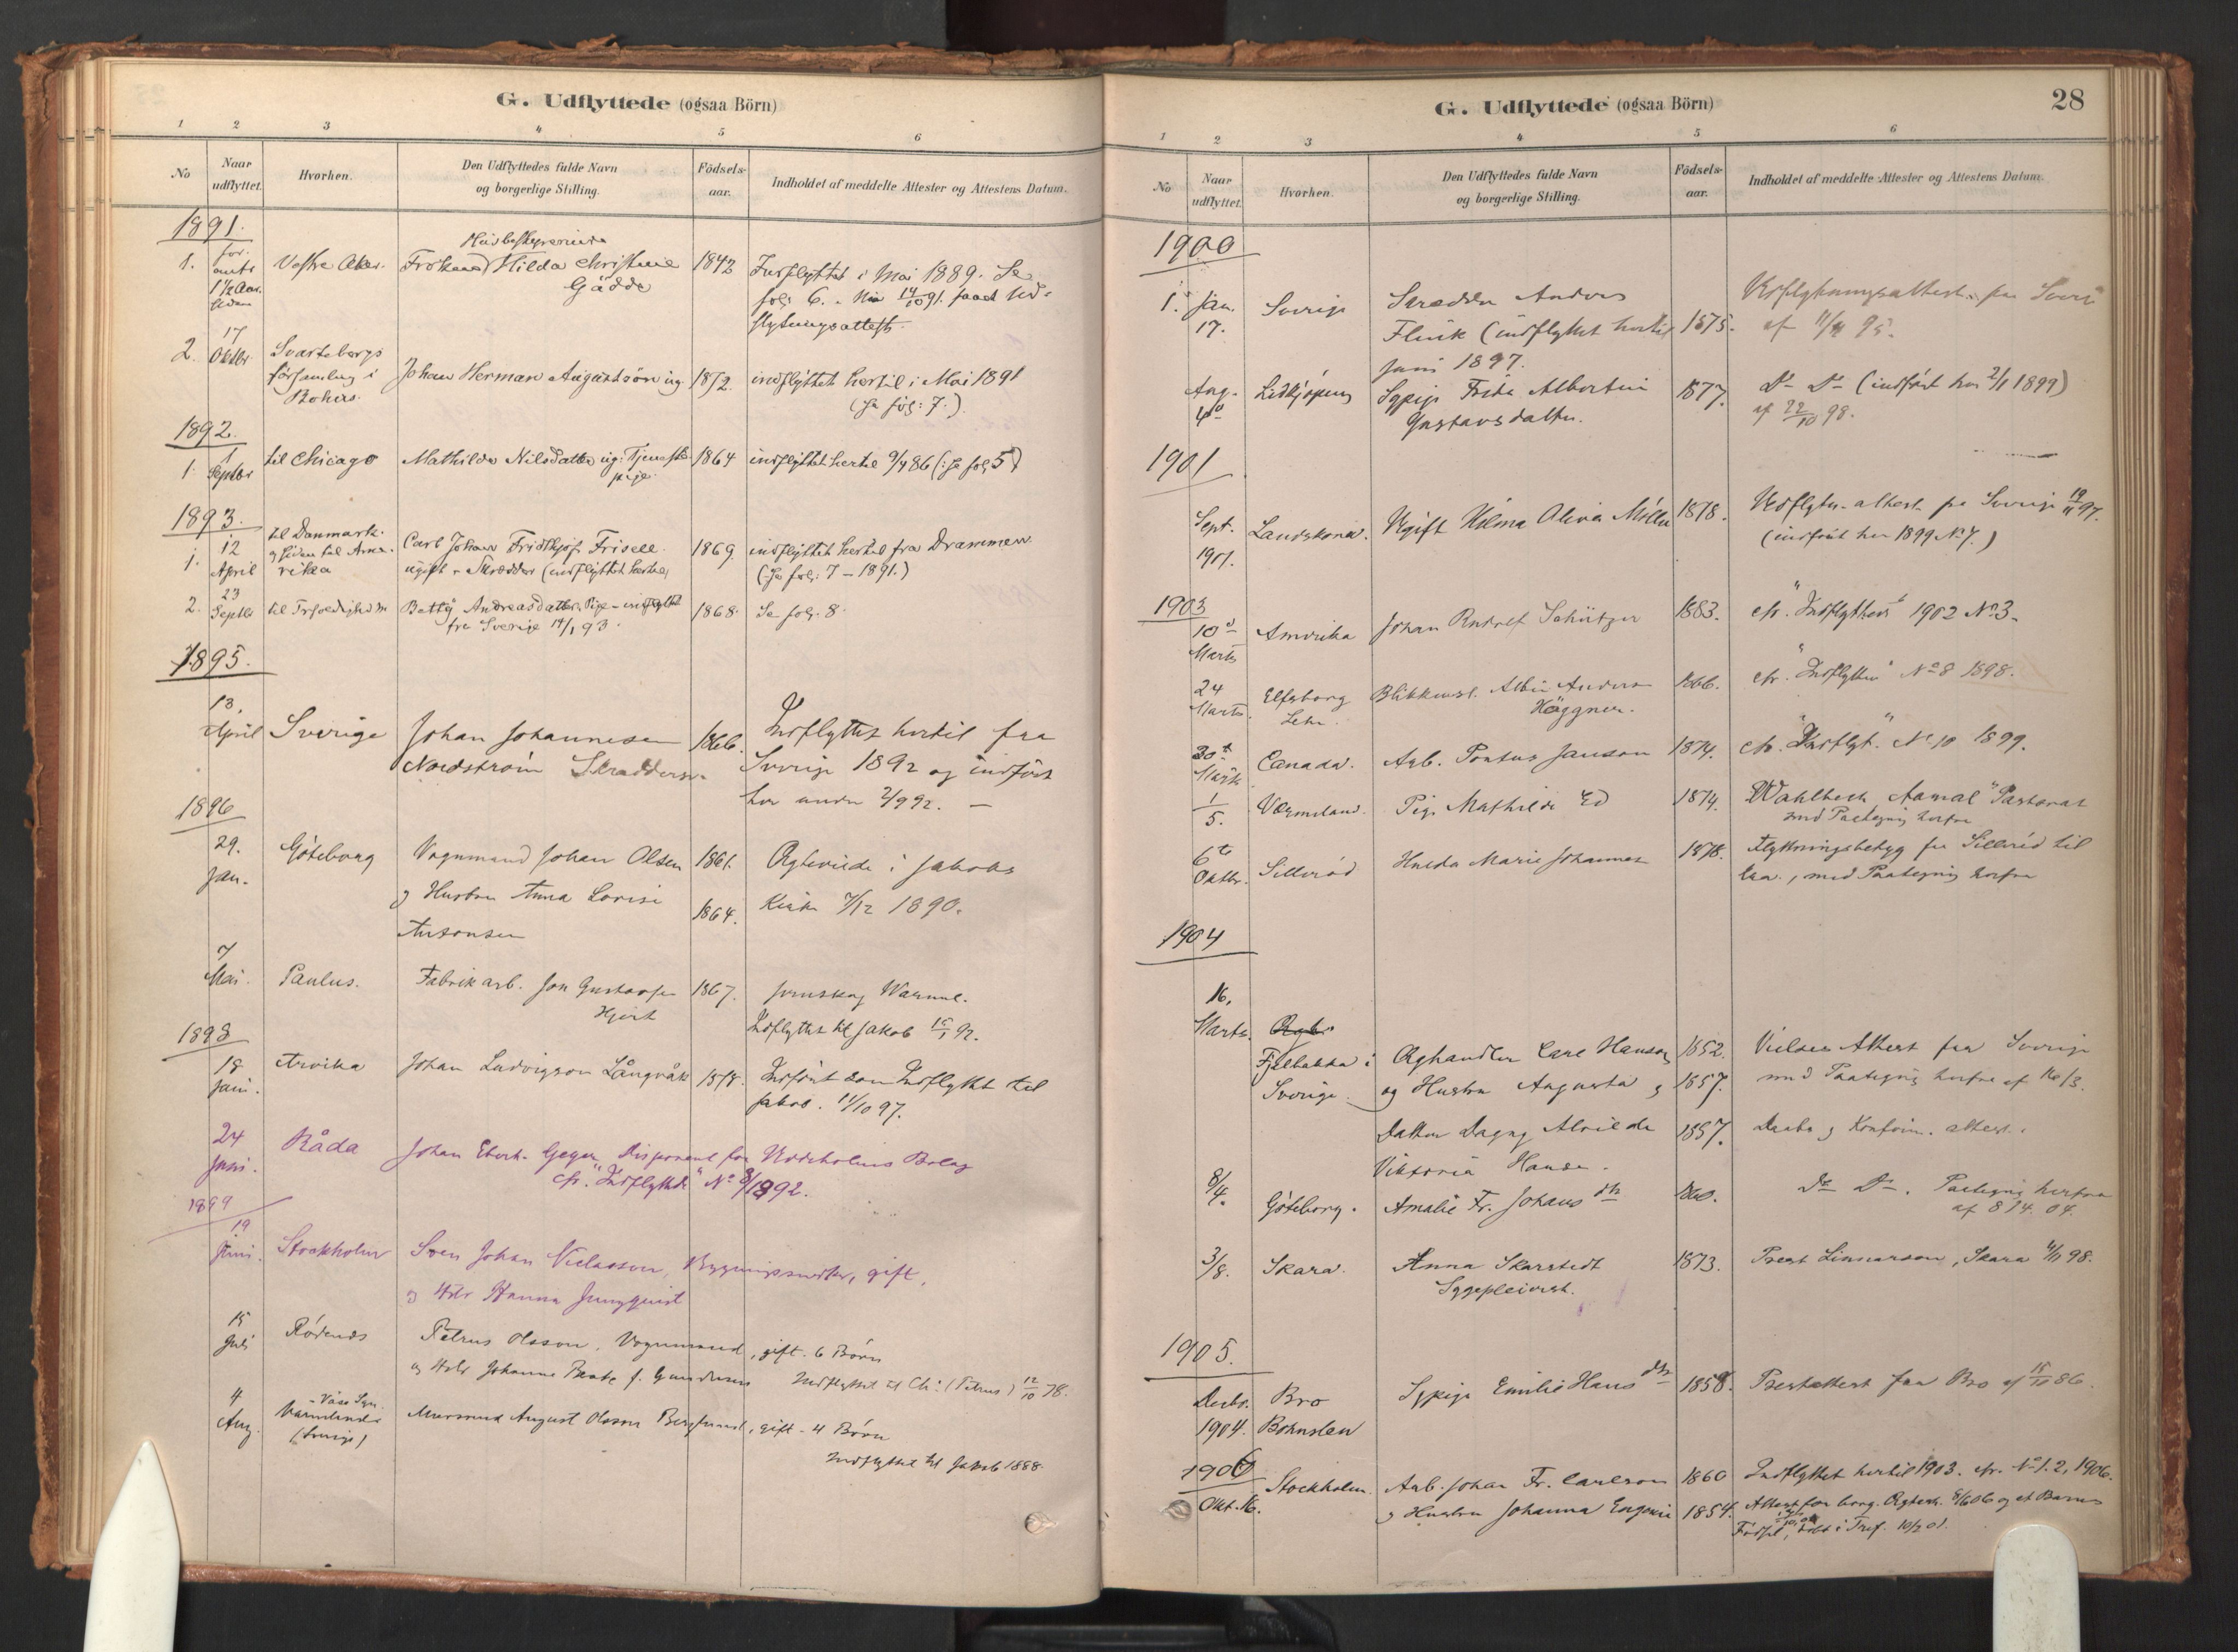 G. Udflyttede (ogsaa Börn)
1 2 3 4 5 6
No
Naar udflyttet.
Hvorhen.
Den Udflyttedes fulde Navn
og borgerlige Stilling.
Födsels-
aar.
Indholdet af meddelte Attester og Attestens Datum.
1891.
1. for omtr 1½ Aar siden
Vestre Aker.
Husbestyrerinde
Frøken Hilda Christine
Gädda
1842
Indflyttet i Mai 1889. Se
fol: 6. 14/10 91. faaet Ud-
flytningsattest.
2. 17 Oktbr.
Svarteborgs
församling i
Bohus.
Johan Herman Augustsön ug.
1872.
indflyttet hertil i Mai 1891
(se fol: 7.)
1892.
1. 1 Septbr
til Chicago
Mathilde Nilsdatter ug. Tjeneste
pige
1864
indflyttet hertil 9/4 86 (: se fol; 5)
1893.
1. 12 April
til Danmark.
og siden til Ame-
rika
Carl Johan Fridthjof Frisell
ugift - Skrædder (indflyttet hertil)
1869.
indflyttet hertil fra Drammen
(: Se fol: 7 - 1891.)
2. 23 Septbr
Betty Andreasdatter. Pige - indflyttet
fra Sverige 14/1 93.
1868.
Se fol. 8.
1895.
13. April
Sverige
Johan Johannesen
Nordström Skræddersv.
1866.
Indflyttet hertil fra
Sverige 1892 og indført
her under 2/9 92. —
1896
29. Jan.
Göteborg
Vognmand Johan Olsen
og Hustru Anna Lovise
Antonsen
1861.
1864.
Ægteviede i Jakobs
Kirke 7/12 1890.
7 Mai.
Paulus.
Fabrikarb. Jon Gustavsen
Hjert
1867.
Indflyttet til Jakob 15/1 92.
1898
18 Juni.
Arvika
Johan Ludvigson Långvåk
1878.
Indført som Indflyttet til
Jakob. 11/10 97.
24 Juni.
Råda
Johan Eberh. Geijer Disponent for Uddeholms Bolag
cfr. "Indflyttede" No 8/1892.
1899
19 Juni.
Stockholm
Sven Johan Nielsson, Bygningssnedker, gift,
og Hstr Hanna Jungquist
15 Juli
Rödenes
Petrus Olsson. Vognmand, gift. 6 Börn
og Hstr Johanne Beate f. Gundersen
Indflyttet til Ch: (Petrus) 12/10 78.
4 Aug.
Värmland
(Sverige)
Murersvend August Olsson Berglund, gift - 4 Börn
Indflyttet til Jakob 1888.
G. Udflyttede (ogsaa Börn)
28
1 2 3 4 5 6
No
Naar udflyttet.
Hvorhen.
Den Udflyttedes fulde Navn
og borgerlige Stilling.
Födsels-
aar.
Indholdet af meddelte Attester og Attestens Datum.
1900
1. Jan. 17.
Sverige
Skrædder Anders
Flink (indflyttet hertil
Juni 1897.
1875.
Udflytningsattest fra Sverige
af 11/11 95.
Aug. 4de
Lidkjøping
Sypige Frida Albertine
Gustavsdatter.
1877.
Do Do (indført her 2/1 1899)
af 22/10 98.
1901
Sept. 1901.
Landskrona.
Ugift Hilma Olivia Möller
1878.
Udflytn. attest fra Sverige 19/11 97.
(indført her 1899 No 7.)
1903
10de Marts
Amerika
Johan Rudolf Schützer
1883.
cfr. "Indflyttede" 1902 No 3.
24 Marts
Elfsborg
Lehn.
Blikkensl. Albin Anders
Häggner.
1866.
cfr. "Indflyttede" No 8 1898.
30te
Canada.
Arb. Pontus Janson
1874.
cfr. "Indflyt." No 10 1899.
1/5.
Værmland.
Pige Mathilde Ed
1874.
Wahlbeck Aamal Pastorat
med Paategning herfra
6te Oktbr.
Sillerød
Hulda Marie Johannes
1878.
Flyttningsbetyg fra Sillerød til
, med Paategning herfra
1904
16. Marts.
Fjelbakka i
Sverige.
Æghandler Carl Hanson
og Hustru Augusta og
Datter Dagny Alvilde
Viktoria Hansen.
1852.
1857.
1887.
Vielses Attest fra Sverige
med Paategning herfra af 16/3.
Daabs og Konfirm. attest.
8/4.
Göteborg.
Amalie Fr. Johansdtr
1860.
Do Do. Paategning herfra
af 8/4. 04.
3/8.
Skara.
Anna Skarstedt
Sygepleierst.
1873.
Prest Linnarson, Skara 4/11 98.
1905.
Decbr. 1904.
Bro
Bohuslen
Sypige Emilie Hansdtr
1858.
Prestattest fra Bro af 15/11 86.
1906
Okt. 16.
Stockholm.
Arb. Johan Fr. Carlsson
og Hustru Johanna Eugenie
1860
1854.
Indflyttet hertil 1903. cfr. No 1. 2, 1906.
Attest for borg. Ægtesk. 8/6 06 og et Barns
Fødsel, født i Tref. 10/2 01.